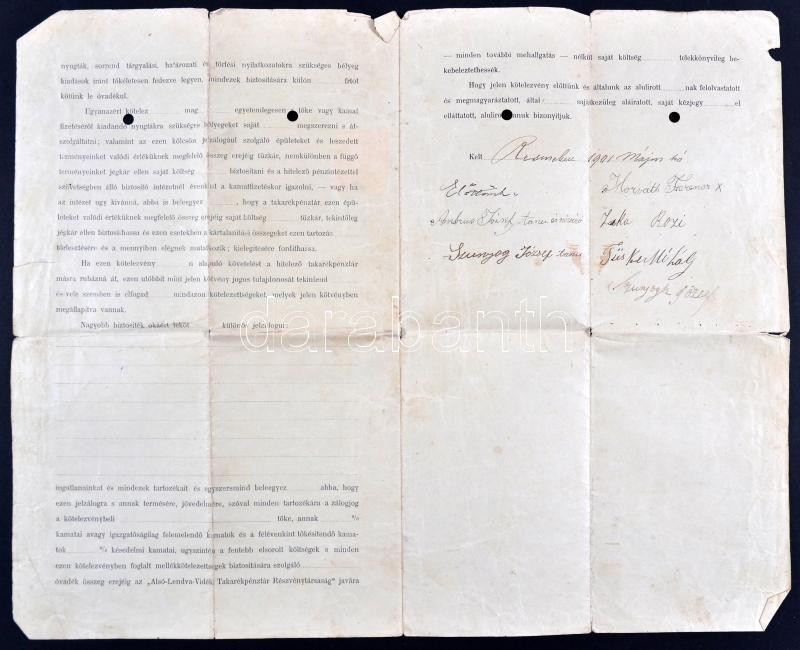 nyugták, sorrend tárgyalási, határozati és törlési nyilatkozatokra szükséges bélyeg
kiadások iránt tökéletesen fedezve legyen, mindezek biztosítására külön frtot
kötünk le óvadékul.
Ugyanazért kötelez mag egyetemlegesen a tőke vagy kamat
fizetéséről kiandando nyugtákra szükséges bélyegeket saját megszerezni s át-
szolgáltatni; valamint az ezen kölcsön jelzálogául szolgáló épületeket és leszedett
terményeinket valódi értéküknek megfelelő összeg erejéig tűzkár, nemkülönben a függő
terményeinket jégkár ellen saját költség biztosítani és a hitelező pénzintézettel
szövetségben álló biztosító intézetnél évenkint a kamatfizetéskor igazolni, — vagy ha
az intézet ugy kivánná, abba is beleegyez , hogy a takarékpénztár ezen épü-
leteket valódi értéküknek megfelelő összeg erejéig saját költség tűzkár, tekintőleg
jégkár ellen biztosíthassa és ezen esetekben a kártalanítási összegeket ezen tartozás
törlesztésére és a mennyiben elégnek mutatkozik; kielégítésére fordíthassa.
Ha ezen kötelezvény n alapuló követelést a hitelező takarékpénztár
másra ruházná át, ezen utóbbit mint jelen kötvény jogus tulajdonosát tekintend
és vele szemben is elfogad mindazon kötelezettségeket, melyek jelen kötvényben
megállapítva vannak.
Nagyobb biztosíték okáért leköt különös jelzálogul:
ingatlanainkat és mindezek tartozékait és egyszersmind beleegyez abba, hogy
ezen jelzálogra s annak termésére, jövedelmére, szóval minden tartozékára a zálogjog
a kötelezvénybeli tőke, annak %
kamatai avagy igazgatóságilag felemelendő kamatok és a félévenkint tőkésítendő kama-
tok % késedelmi kamatai, ugyszintén a fentebb elsorolt költségek s minden
ezen kötelezvényben foglalt mellékkötelezettségek biztosítására szolgáló
óvadék összeg erejéig az „Alsó-Lendva-Vidéki Takarékpénztár Részvénytársaság" javára
— minden további mehallgatás — nélkül saját költség telekkönyvileg be-
kebeleztethessék.
Hogy jelen kötelezvény előttünk és általunk az alulirott nak felolvastatott
és megmagyaráztatott, által sajátkezüleg aláiratott, saját kézjegy el
elláttatott, alulirottannak bizonyítjuk.
Kelt 1901 Május hó
Előttünk. Horváth Ferencz x
Ambrus József tanu és névíró Rozi
Szunyog József tanu Füsker Mihály
Szunyogh József
darabanth